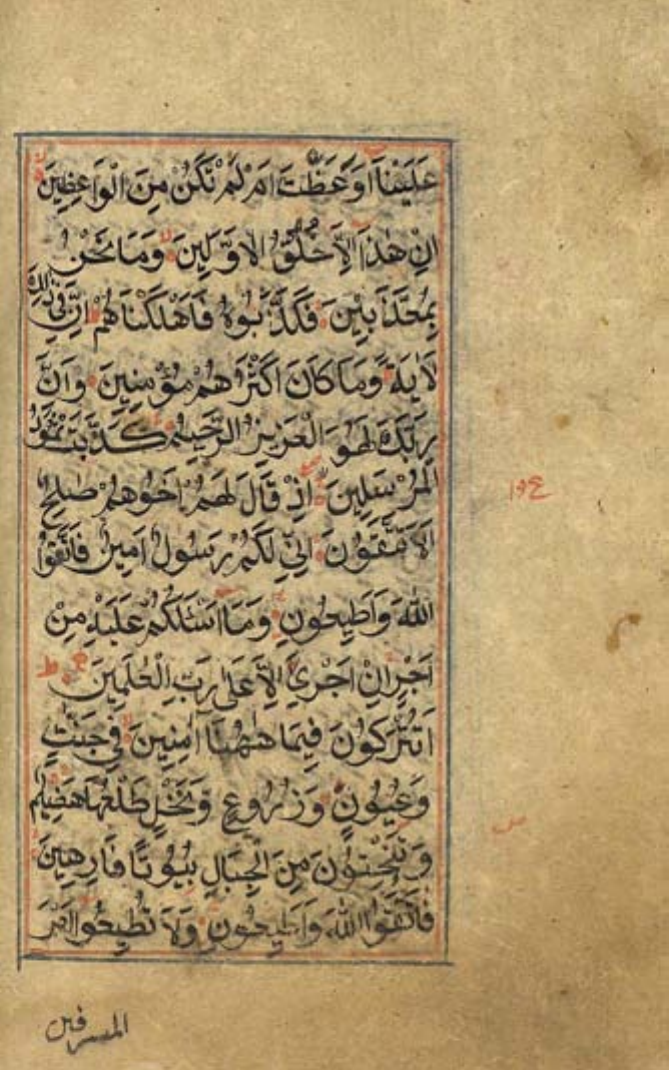 عَلَيْنَآ اَوَعَظْتَ اَمْ لَمْ تَكُنْ مِنَ الْوَاعِظِينَ
اِنْ هٰذَآ اِلَّا خُلُقُ الْاَوَّلِينَ وَمَا نَحْنُ
بِمُعَذَّبِينَ فَكَذَّبُوهُ فَاَهْلَكْنَاهُمْ اِنَّ فِي ذٰلِكَ
لَاٰيَةً وَمَا كَانَ اَكْثَرُهُمْ مُؤْمِنِينَ وَاِنَّ
رَبَّكَ لَهُوَ الْعَزِيزُ الرَّحِيمُ كَذَّبَتْ ثَمُودُ
الْمُرْسَلِينَ اِذْ قَالَ لَهُمْ اَخُوهُمْ صٰلِحٌ
اَلَا تَتَّقُونَ اِنِّي لَكُمْ رَسُولٌ اَمِينٌ فَاتَّقُوا
اللّٰهَ وَاَطِيعُونِ وَمَآ اَسْـَٔلُكُمْ عَلَيْهِ مِنْ
اَجْرٍ اِنْ اَجْرِيَ اِلَّا عَلٰى رَبِّ الْعٰلَمِينَ ط
اَتُتْرَكُونَ فِيمَا هٰهُنَآ اٰمِنِينَ فِي جَنّٰتٍ
وَعُيُونٍ وَزُرُوعٍ وَنَخْلٍ طَلْعُهَا هَضِيمٌ
وَتَنْحِتُونَ مِنَ الْجِبَالِ بُيُوتًا فَارِهِينَ
فَاتَّقُوا اللّٰهَ وَاَطِيعُونِ وَلَا تُطِيعُوا اَمْرَ
المسرفين